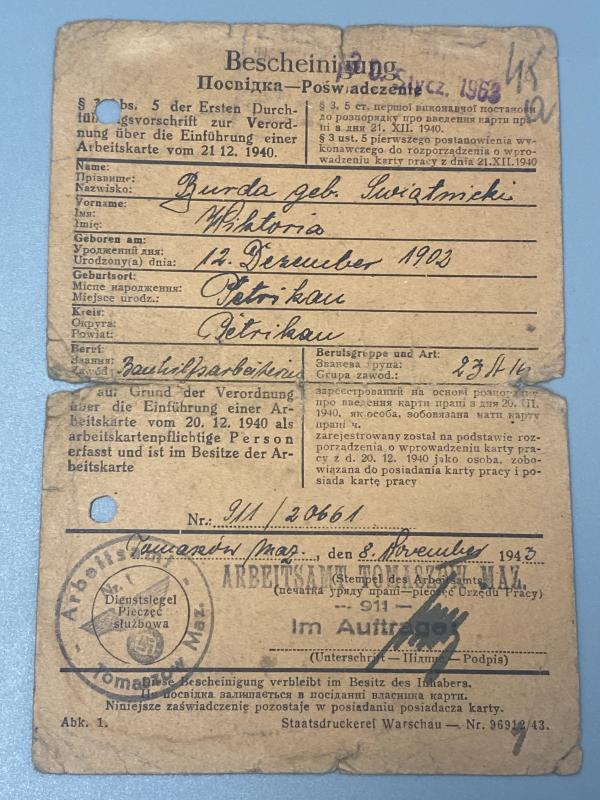 Bescheinigung
Посвідка—Poświadczenie
Stycz. 1963
§ 3 Abs. 5 der Ersten Durch-
führungsvorschrift zur Verord-
nung über die Einführung einer
Arbeitskarte vom 21 12. 1940.
§ 3. 5 ст. першої виконавчої постанови
до розпорядку про введення карти пра-
ні з дня 21. XII. 1940.
§ 3 ust. 5 pierwszego postanowienia wy-
konawczego do rozporządzenia o wpro-
wadzeniu karty pracy z dnia 21.XII.1940
Name:
Прізвище:
Nazwisko:
Burda geb. Swiątnicki
Vorname:
Імя:
Imię:
Wiktoria
Geboren am:
Уроджений дня:
Urodzony(a) dnia:
12. Dezember 1902
Geburtsort:
Місце народження:
Miejsce urodz.:
Petrikau
Kreis:
Округа:
Powiat:
Petrikau
Beruf:
Звання:
Zawód:
Bauhilfsarbeiterin
Berufsgruppe und Art:
Званева група:
Grupa zawod.:
23 A
auf Grund der Verordnung
über die Einführung einer Ar-
beitskarte vom 20. 12. 1940 als
arbeitskartenpflichtige Person
erfasst und ist im Besitze der Ar-
beitskarte
зареєстрований на основі розпорядку
про введення карти праці з дня 20. XII.
1940, як особа, зобовязана мати карту
праці ч.
zarejestrowany został na podstawie roz-
porządzenia o wprowadzeniu karty pra-
cy z d. 20. 12. 1940 jako osoba, zobo-
wiązana do posiadania karty pracy i po-
siada kartę pracy
Nr.: 911/20661
Tomaszów Maz., den 8. November 1943
ARBEITSAMT TOMASZOW MAZ.
(Stempel des Arbeitsamts)
(печатка уряду праці—pieczęć Urzędu Pracy)
— 911 —
Im Auftrage:
Arbeitsamt
Nr. 1
Dienstsiegel
Pieczęć
służbowa
Tomaszow Maz.
(Unterschrift — Підпис — Podpis)
Diese Bescheinigung verbleibt im Besitz des Inhabers.
Ця посвідка залишається в посіданні власника карти.
Niniejsze zaświadczenie pozostaje w posiadaniu posiadacza karty.
Abk. 1.
Staatsdruckerei Warschau — Nr. 96912/43.